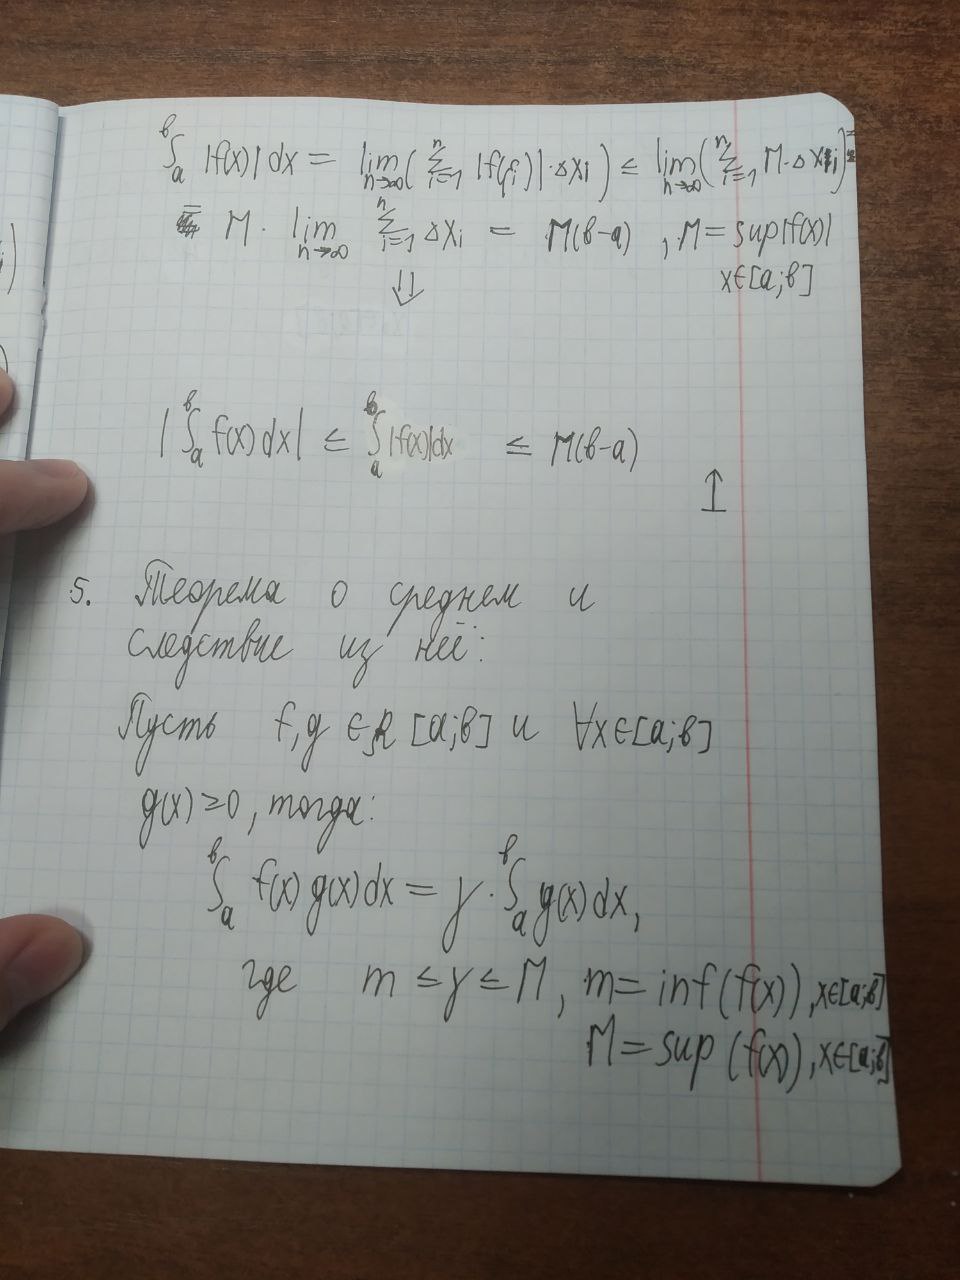 ∫ₐᵇ |f(x)| dx = lim_{n→∞} (∑_{i=1}^{n} |f(ξᵢ)| · Δxᵢ) ≤ lim_{n→∞} (∑_{i=1}^{n} M · Δxᵢ) =
= M · lim_{n→∞} ∑_{i=1}^{n} Δxᵢ = M(b-a) , M = sup|f(x)|
x∈[a;b]
⇓
|∫ₐᵇ f(x) dx| ≤ ∫ₐᵇ |f(x)| dx ≤ M(b-a)
↥
5. Теорема о среднем и
следствие из неё:
Пусть f,g ∈ R [a;b] и ∀x∈[a;b]
g(x) ≥ 0, тогда:
∫ₐᵇ f(x) g(x) dx = γ · ∫ₐᵇ g(x) dx,
где m ≤ γ ≤ M, m = inf (f(x)), x∈[a;b]
M = sup (f(x)), x∈[a;b]